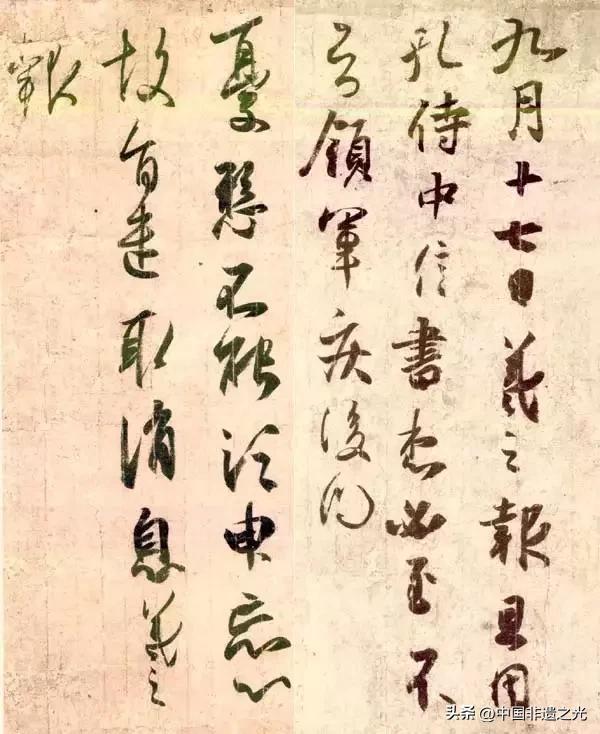 九月十七日羲之報且因
孔侍中信書想必至不
知領軍疾後問
憂懸不能須臾忘心
故旨遣取消息羲之
報
头条 @中国非遗之光